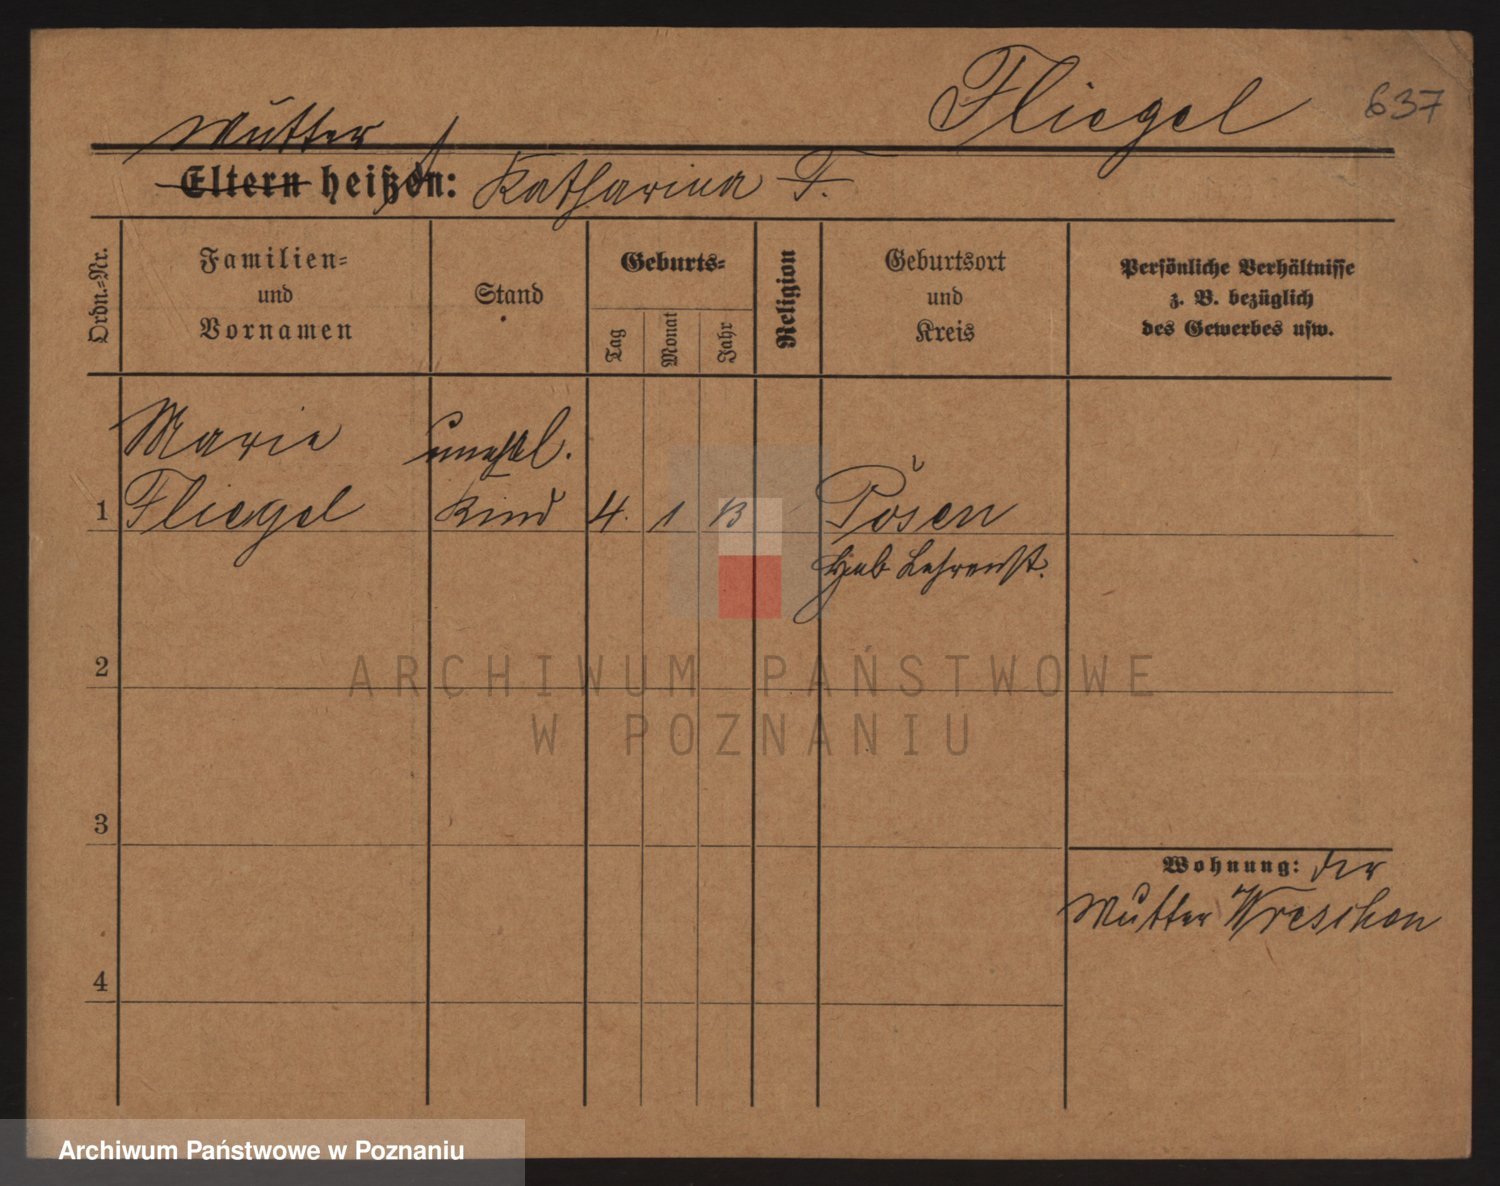 Fliegel 637
Mutter
Eltern heißen: Katharina F.
Ordn.-Nr.
Familien-
und
Vornamen
Stand
Geburts-
Tag
Monat
Jahr
Religion
Geburtsort
und
Kreis
Persönliche Verhältnisse
z. B. bezüglich
des Gewerbes usw.
Marie unehel.
1 Fliegel Kind 4. 1 13 Posen
Heb Lehranst.
2
3
4
Wohnung: der
Mutter Wreschen
ARCHIWUM PAŃSTWOWE
W POZNANIU
Archiwum Państwowe w Poznaniu